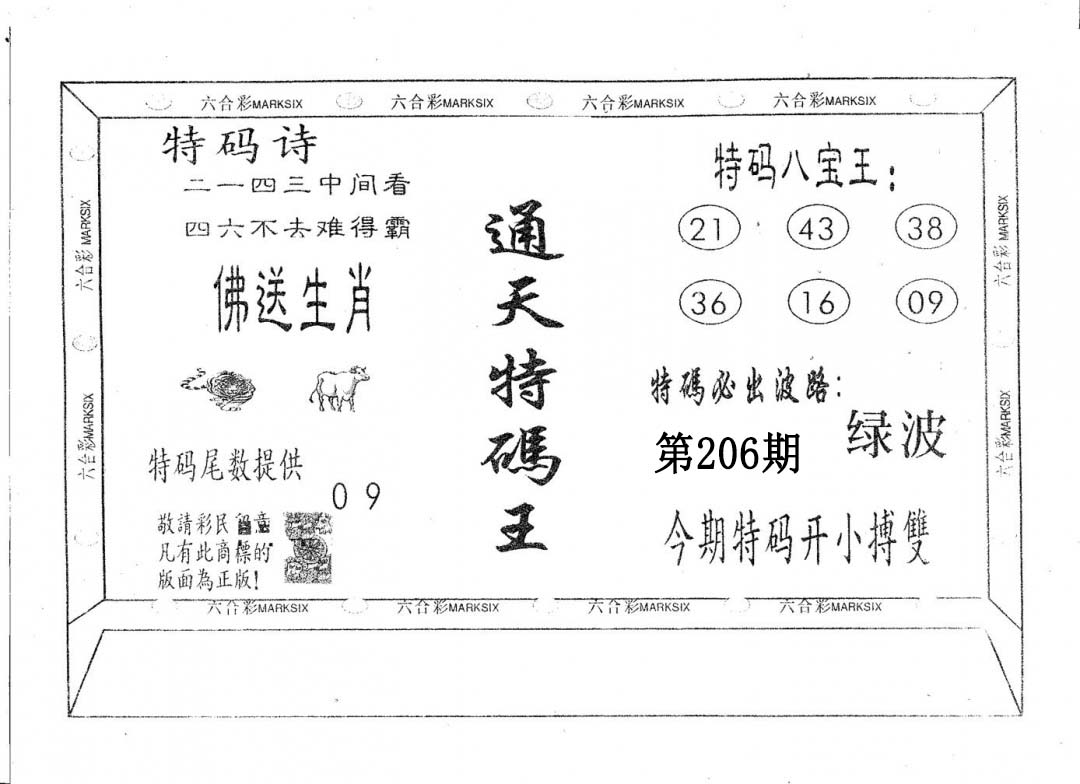 六合彩MARKSIX 六合彩MARKSIX 六合彩MARKSIX 六合彩MARKSIX
六合彩MARKSIX
六合彩MARKSIX
特码诗
二一四三中间看
四六不去难得霸
佛送生肖
特码尾数提供
09
敬請彩民留意
凡有此商標的
版面為正版!
通天特碼王
特码八宝王:
21 43 38
36 16 09
特碼必出波路:
绿波
第206期
今期特码开小搏雙
六合彩MARKSIX
六合彩MARKSIX
六合彩MARKSIX 六合彩MARKSIX 六合彩MARKSIX 六合彩MARKSIX